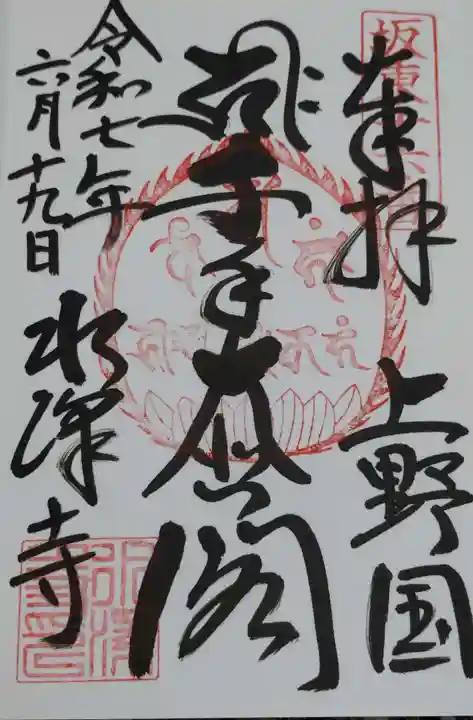 坂東
奉拝 上野国
千手大悲閣
令和七年
六月十九日
水澤寺